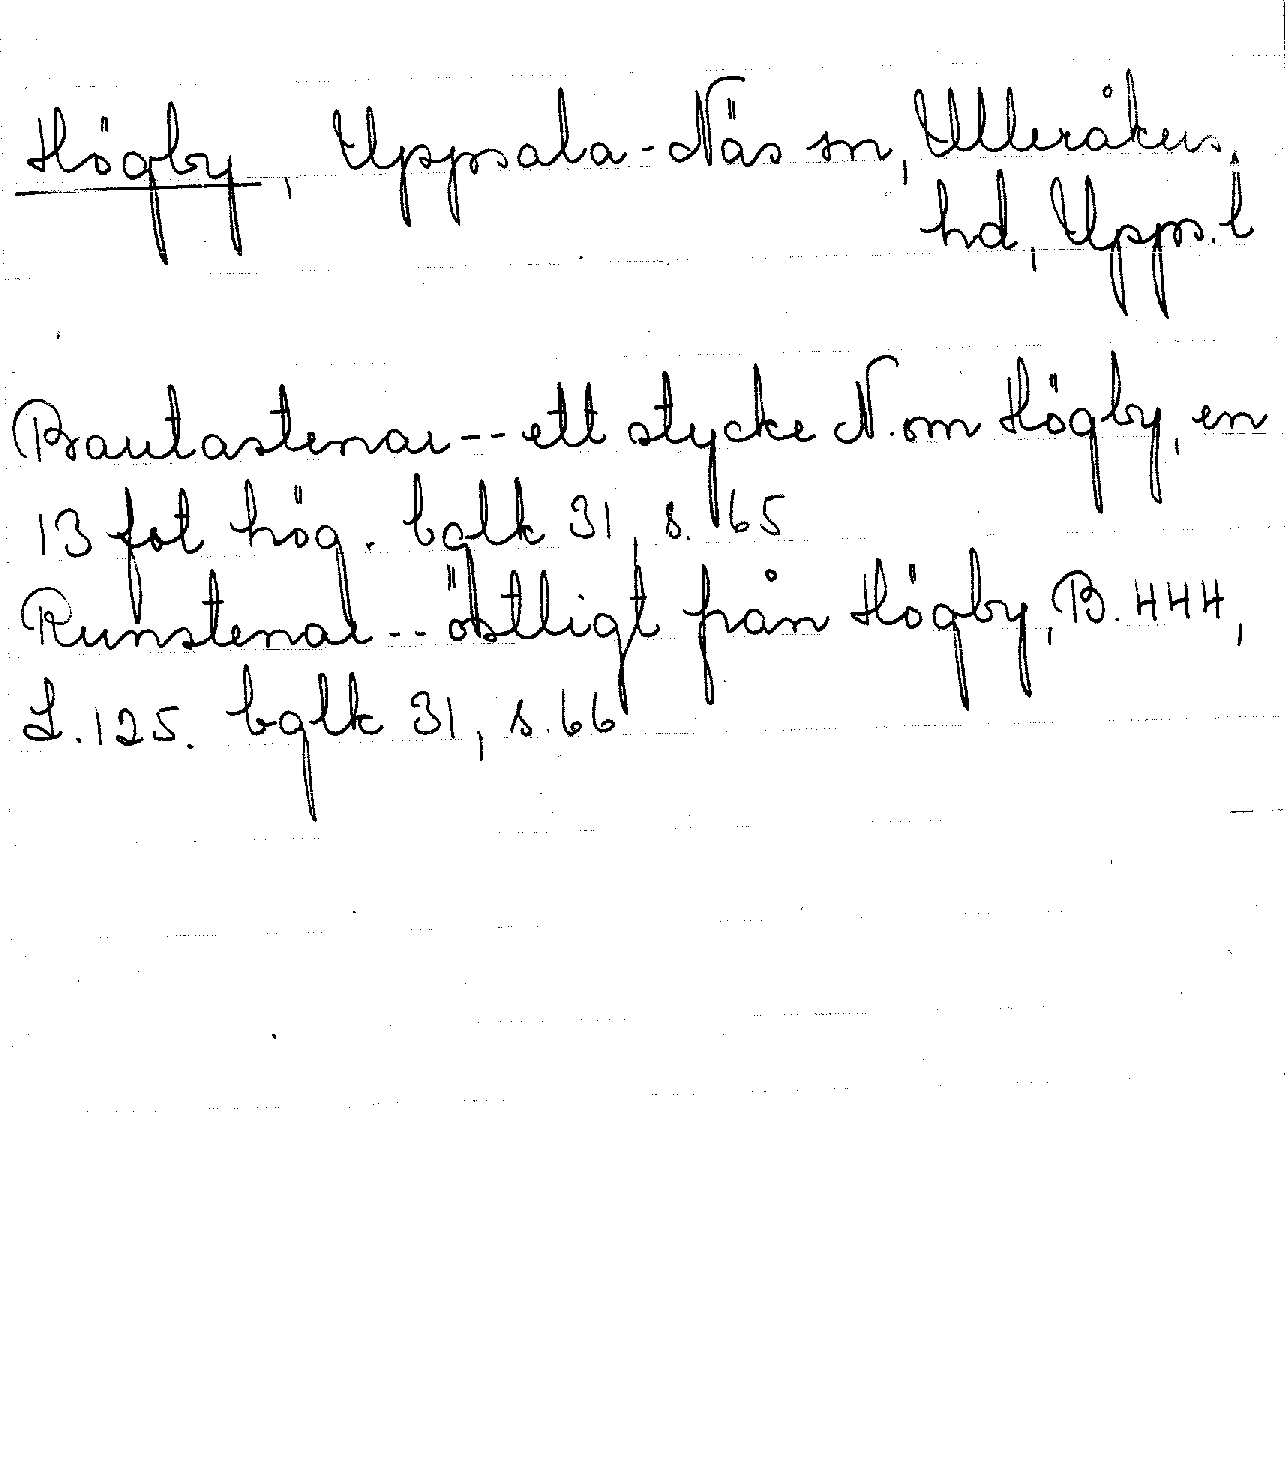 Högby, Uppsala-Näs sn, Ulleråkers
hd, Upps. l
Bautastenar -- ett stycke N. om Högby, en
13 fot hög. bglk 31, s. 65
Runstenar -- östligt från Högby, B. 444,
L. 125. bglk 31, s. 66